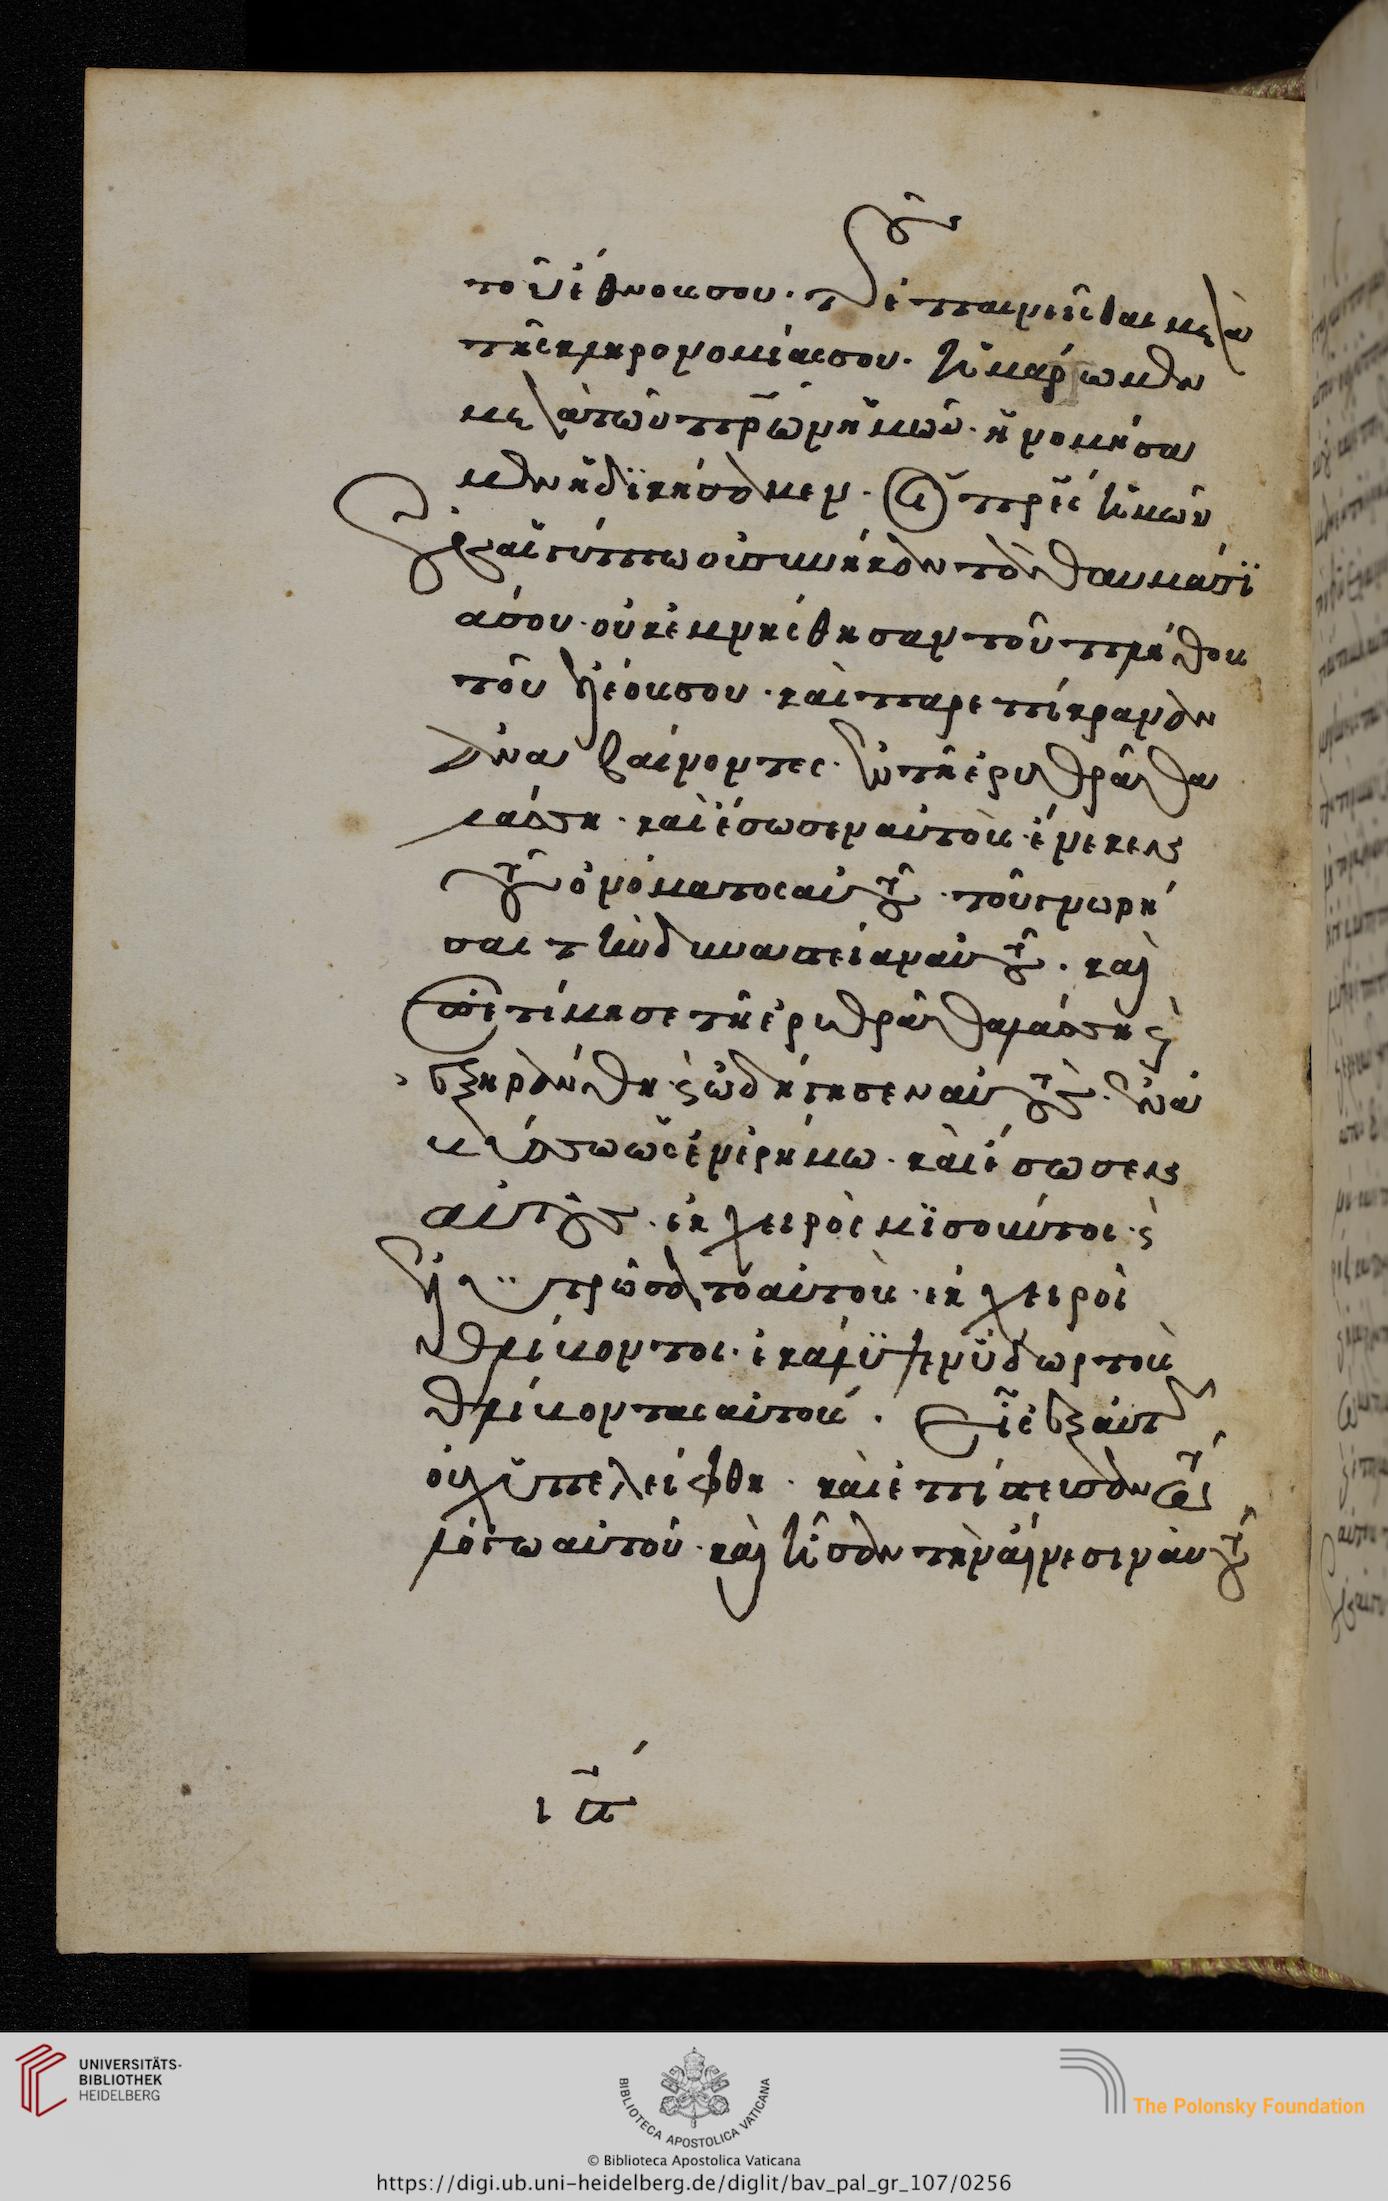 τοῦ ἔθνους σου· τοῦ ἐπαινεῖσθαι μετὰ
τῆς κληρονομίας σου· ἡμάρτωμεν
μετὰ τῶν πρων ἡμῶν· ἠνομήσα
μεν ἠδϊκήσαμεν· οἱ πρες ἡμῶν
ἐν αἰγύπτω οὐ συνῆκαν τὰ θαυμάσϊ
α σου· οὐκ ἐμνήσθησαν τοῦ πλήθους
τοῦ ἐλέους σου· καὶ παρεπίκραναν
ἀναβαίνοντες· ἐν τῆ ἐρυθρᾶ θα
λάσση· καὶ ἔσωσεν αὐτοὺς ἕνεκεν
τοῦ ὀνόματος αὐτοῦ· τοῦ γνωρί
σαι τὴν δυναστείαν αὐτοῦ· καὶ
ἐπετίμησε τῆ ἐρυθρᾶ θαλάσση καὶ
ἐξηράνθη· καὶ ὡδήγησεν αὐτοὺς· ἐν ἀ
βύσσω ὡς ἐν ἐρήμω· καὶ ἔσωσεν
αὐτοὺς· ἐκ χειρὸς μϊσούντος· καὶ
ἐλυτρώσατο αὐτοὺς· ἐκ χειρὸς
θλίβοντος· ἐκάλϋψεν ὕδωρ τοὺς
θλίβοντας αὐτούς· εἷς ἐξ αὐτῶν
οὐχ ὑπελείφθη· καὶ ἐπίστευσαν τοῖς
λόγοις αὐτοῦ· καὶ ἦσαν τὴν αἴνεσιν αὐτοῦ
UNIVERSITÄTS-
BIBLIOTHEK
HEIDELBERG
BIBLIOTECA APOSTOLICA VATICANA
© Biblioteca Apostolica Vaticana
The Polonsky Foundation
https://digi.ub.uni-heidelberg.de/diglit/bav_pal_gr_107/0256